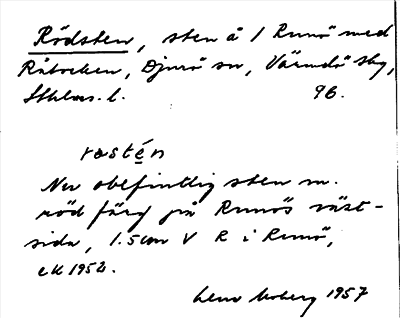 Rödsten, sten å 1 Runö med
Råbocken, Djurö sn, Värmdö sbg,
Sthlms. l. 96.
rastén
Nu obefintlig sten m.
röd färg på Runös väst-
sida, 1.5 cm V R i Runö,
ek 1952.
Lena Moberg 1957